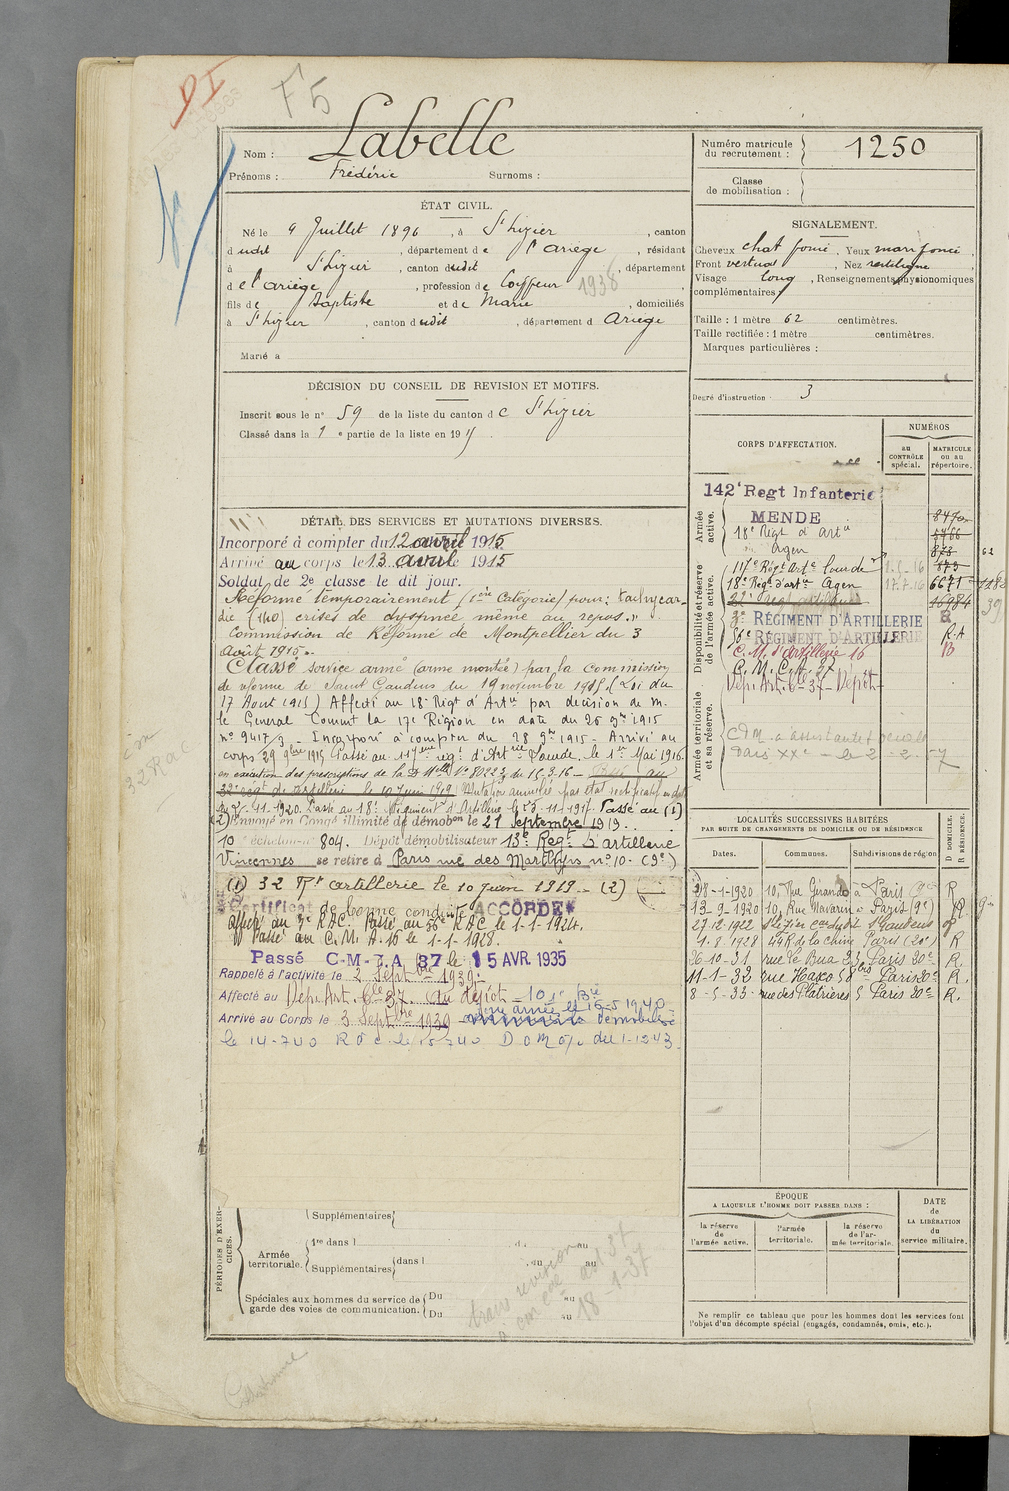 F5
Nom : Labelle
Prénoms : Frédéric Surnoms :
ÉTAT CIVIL.
Né le 9 Juillet 1896, à St Lizier, canton
dudit, département de l'Ariège, résidant
à St Lizier, canton dudit, département
de l'Ariège, profession de Coiffeur 1938
fils de Baptiste et de Marie, domiciliés
à St Lizier, canton dudit, département d Ariège
Marié à
DÉCISION DU CONSEIL DE REVISION ET MOTIFS.
Inscrit sous le n° 59 de la liste du canton de St Lizier
Classé dans la 1e partie de la liste en 19
DÉTAIL DES SERVICES ET MUTATIONS DIVERSES.
Incorporé à compter du 12 avril 1915
Arrivé au corps le 13 avril 1915
Soldat de 2e classe le dit jour.
Réformé temporairement (1ère Catégorie) pour : tachycar-
die (140) crises de dyspnée même au repos.
Commission de Réforme de Montpellier du 3
Août 1915.
Classé service armé (arme montée) par la Commission
de réforme de Saint Gaudens du 19 novembre 1915 (Loi du
17 Aout 1915) Affecté au 18e Régt d'Artie par décision de M.
le Général Commt la 17e Région en date du 26 9bre 1915
n° 9417-3 - Incorporé à compter du 28 9bre 1915 - Arrivé au
corps 29 9bre 1915 Passé au 117ème régt d'Artie Lourde, le 1er Mai 1916
en exécution des prescriptions de la D Mlle N° 80223 du 15.3.16 - Passé au
32e régt d'artillerie le 10 Juin 1919 Mutation annulée par état rectificatif en date
du 11-1920. Passé au 18e Régiment d'Artillerie le 11-1917. Passé au (1)
(2) Envoyé en Congé illimité de démobon le 21 Septembre 1919.
10 échelon n° 804. Dépôt démobilisateur 13e Regt d'artillerie
Vincennes se retire à Paris rue des Martyrs n° 10. (9e)
(1) 32 Rt artillerie le 10 Juin 1919 - (2)
Certificat de bonne conduite ACCORDÉ
Affecté au 3e RAC. Passé au 56e RAC le 1-1-1924.
Passé au C.M. A. 16 le 1-1-1928.
Passé C-M-A 37 le 15 AVR. 1935
Rappelé à l'activité le 2 Septbre 1939.
Affecté au Dép. Art. 37 du dépôt 101e Bie
Arrivé au Corps le 3 Septbre 1939 démobilisé
le 14-7-40
PÉRIODES D'EXERCICES.
Supplémentaires
Armée territoriale.
1re dans l
Supplémentaires dans l
Spéciales aux hommes du service de garde des voies de communication.
Du au
Du au
trans revision
18-1-37
Numéro matricule du recrutement : 1250
Classe de mobilisation :
SIGNALEMENT.
Cheveux chat foncé, Yeux marr foncé,
Front vertical, Nez rectiligne
Visage long, Renseignements physionomiques
complémentaires :
Taille : 1 mètre 62 centimètres.
Taille rectifiée : 1 mètre centimètres.
Marques particulières :
Degré d'instruction : 3
CORPS D'AFFECTATION.
NUMÉROS
au CONTRÔLE spécial.
MATRICULE ou au répertoire.
Armée active.
142e Regt Infanterie
MENDE
18e Régt d'Artie
Agen
Disponibilité et réserve de l'armée active.
117e Régt Arte Lourde
18e Régt d'artie Agen 17.7.16 6671
3e RÉGIMENT D'ARTILLERIE
56e RÉGIMENT D'ARTILLERIE R.A
C.M. d'Artillerie 16 B
C.M.C.A. 37
Dép. Art. 37 Dépôt
Armée territoriale et sa réserve.
Paris XXe
LOCALITÉS SUCCESSIVES HABITÉES
PAR SUITE DE CHANGEMENTS DE DOMICILE OU DE RÉSIDENCE
Dates. Communes. Subdivisions de région D DOMICILE. R RÉSIDENCE.
28-1-1920 10, Rue Girando à Paris R
13-9-1920 10, Rue Navarin à Paris (9e) R
27-12-1922 St Lizier con dudit St Gaudens
1.8.1928 49 R de la Chine Paris (20e) R
26-10-31 rue Le Bua 23 Paris 20e R.
11-1-32 rue Haxo 58 bis Paris 20e R.
8-5-33 rue des Platrières 5 Paris 20e R.
ÉPOQUE
A LAQUELLE L'HOMME DOIT PASSER DANS :
la réserve de l'armée active.
l'armée territoriale.
la réserve de l'armée territoriale.
DATE de LA LIBÉRATION du service militaire.
Ne remplir ce tableau que pour les hommes dont les services font
l'objet d'un décompte spécial (engagés, condamnés, omis, etc.).